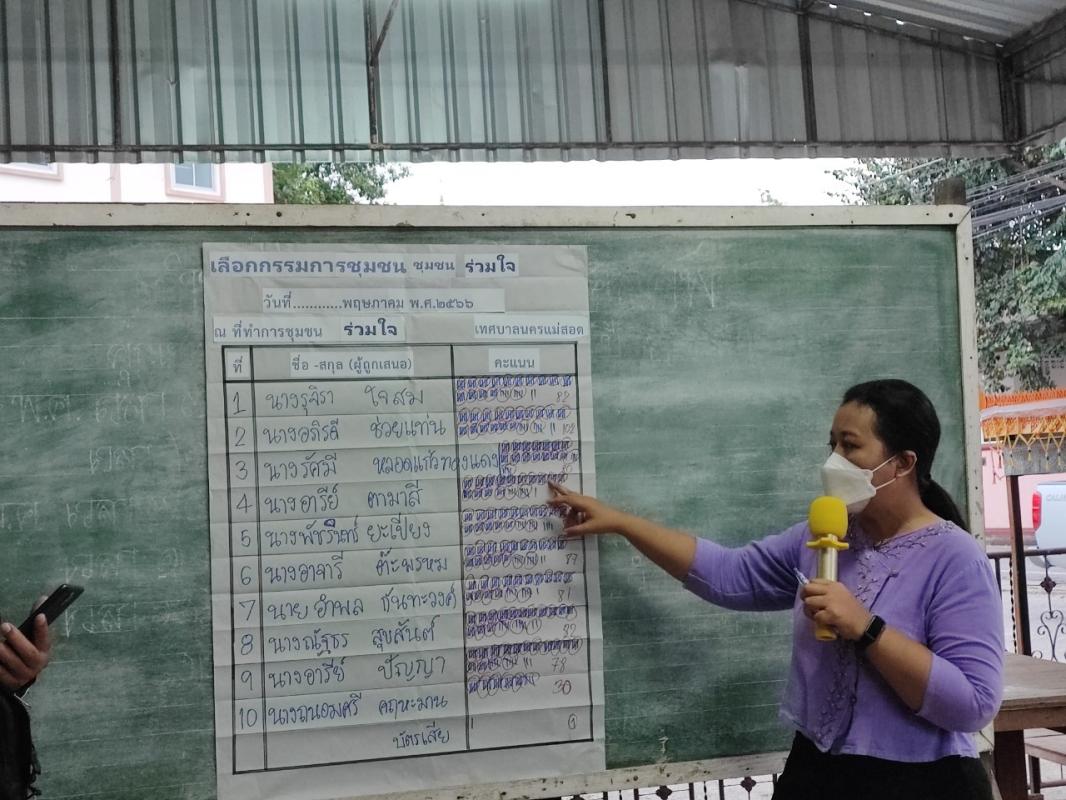 เลือกกรรมการชุมชน ชุมชน ร่วมใจ
วันที่............พฤษภาคม พ.ศ.๒๕๖๖
ณ ที่ทำการชุมชน ร่วมใจ เทศบาลนครแม่สอด
ที่ ชื่อ -สกุล (ผู้ถูกเสนอ) คะแนน
1 นางรุจิรา ใจสม 82
2 นางอภิรดี ช่วยแท่น 102
3 นางรัศมี หมอดแก้วทองแดง
4 นางอารีย์ ตามาสี
5 ยะเปียง
6 นางอาจารี ต๊ะพรหม 77
7 นาย อำพล ขันทะวงศ์ 81
8 นางณัฐธร สุขสันต์ 92
9 นางอารีย์ ปัญญา 78
10 นางถนอมศรี คฤหะมาน 30
บัตรเสีย